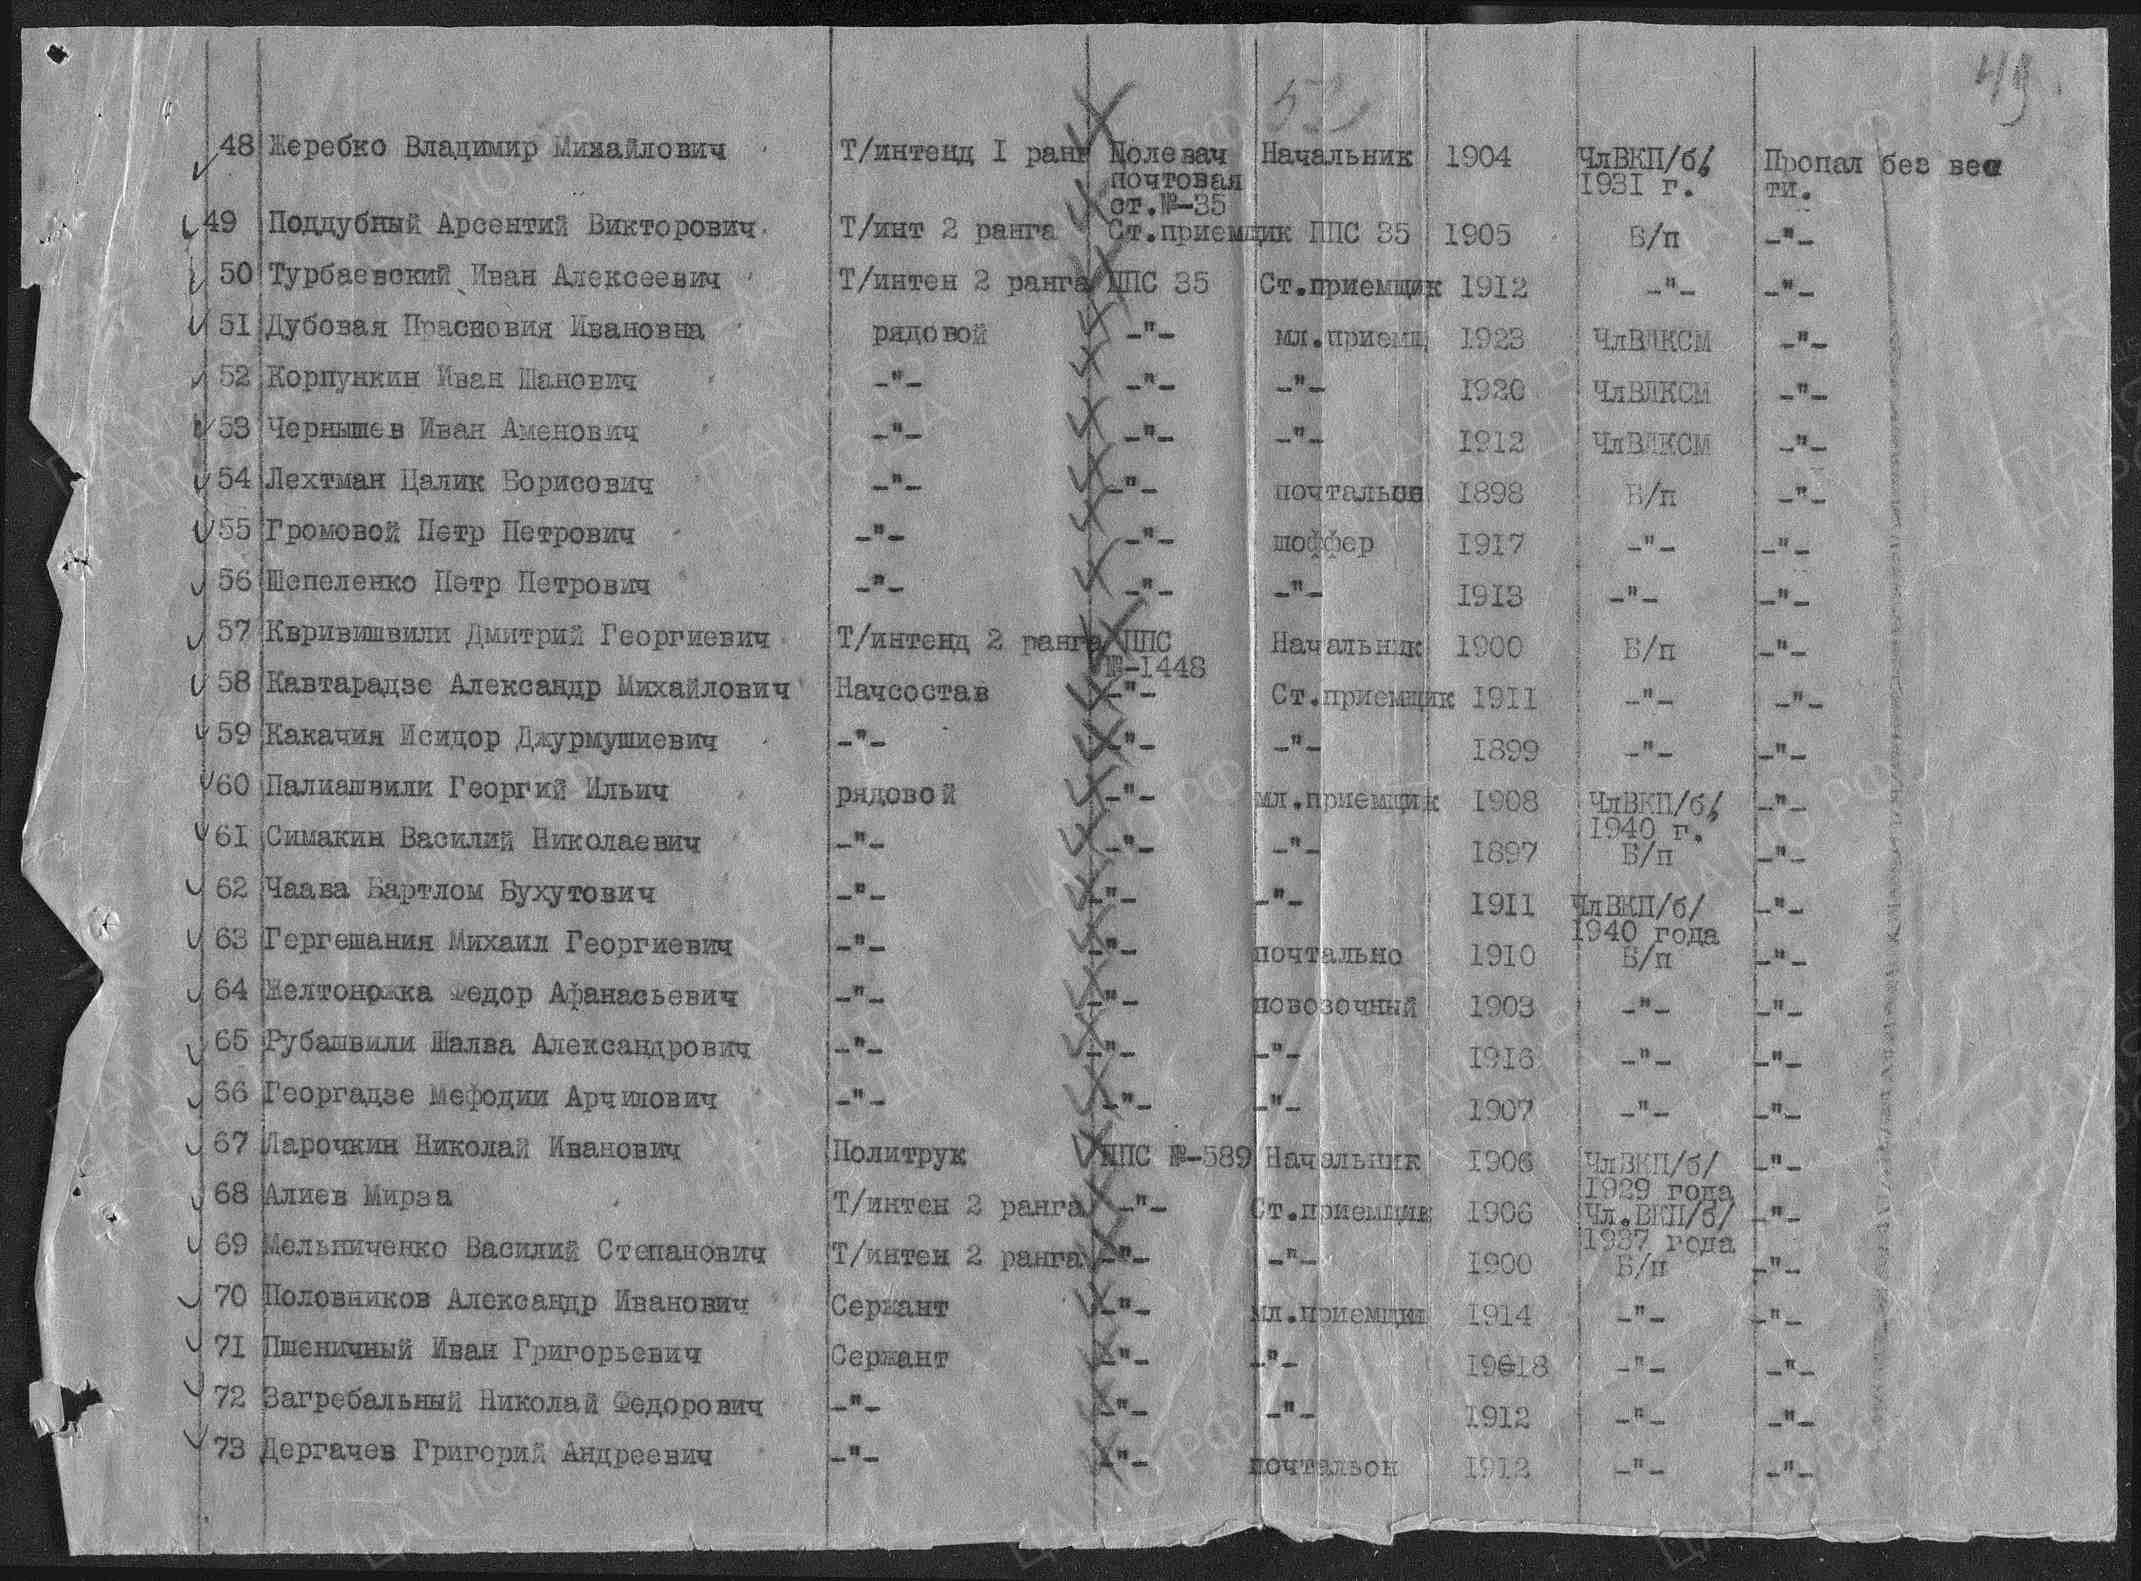 49
52
48 Жеребко Владимир Михайлович Т/интенд I ранг Полевач Начальник 1904 ЧлВКП/б/ Пропал без вес
почтовая 1931 г. ти.
ст.№-35
49 Поддубный Арсентий Викторович Т/инт 2 ранга Ст.приемщик ППС 35 1905 Б/п -"-
50 Турбаевский Иван Алексеевич Т/интен 2 ранга ППС 35 Ст.приемщик 1912 -"- -"-
51 Дубовая Прасковия Ивановна рядовой -"- мл.приемщ 1923 ЧлВЛКСМ -"-
52 Корпункин Иван Шанович -"- -"- -"- 1920 ЧлВЛКСМ -"-
53 Чернышев Иван Аменович -"- -"- -"- 1912 ЧлВЛКСМ -"-
54 Лехтман Цалик Борисович -"- -"- почтальон 1898 Б/п -"-
55 Громовой Петр Петрович -"- -"- шоффер 1917 -"- -"-
56 Шепеленко Петр Петрович -"- -"- -"- 1913 -"- -"-
57 Квривишвили Дмитрий Георгиевич Т/интенд 2 ранга ППС Начальник 1900 Б/п -"-
№-1448
58 Кавтарадзе Александр Михайлович Начсостав -"- Ст.приемщик 1911 -"- -"-
59 Какачия Исидор Джурмушиевич -"- -"- -"- 1899 -"- -"-
60 Палиашвили Георгий Ильич рядовой -"- мл.приемщик 1908 ЧлВКП/б/ -"-
1940 г.
61 Симакин Василий Николаевич -"- -"- -"- 1897 Б/п -"-
62 Чаава Бартлом Бухутович -"- -"- -"- 1911 ЧлВКП/б/ -"-
1940 года
63 Гергешания Михаил Георгиевич -"- -"- почтально 1910 Б/п -"-
64 Желтоножка Федор Афанасьевич -"- -"- повозочный 1903 -"- -"-
65 Рубашвили Шалва Александрович -"- -"- -"- 1916 -"- -"-
66 Георгадзе Мефодии Арчилович -"- -"- -"- 1907 -"- -"-
67 Ларочкин Николай Иванович Политрук ППС №-589 Начальник 1906 ЧлВКП/б/ -"-
1929 года
68 Алиев Мирза Т/интен 2 ранга -"- Ст.приемщик 1906 Чл.ВКП/б/ -"-
1937 года
69 Мельниченко Василий Степанович Т/интен 2 ранга -"- -"- 1900 Б/п -"-
70 Половников Александр Иванович Сержант -"- мл.приемщик 1914 -"- -"-
71 Пшеничный Иван Григорьевич Сержант -"- -"- 19618 -"- -"-
72 Загребальный Николай Федорович -"- -"- -"- 1912 -"- -"-
73 Дергачев Григорий Андреевич -"- -"- почтальон 1912 -"- -"-